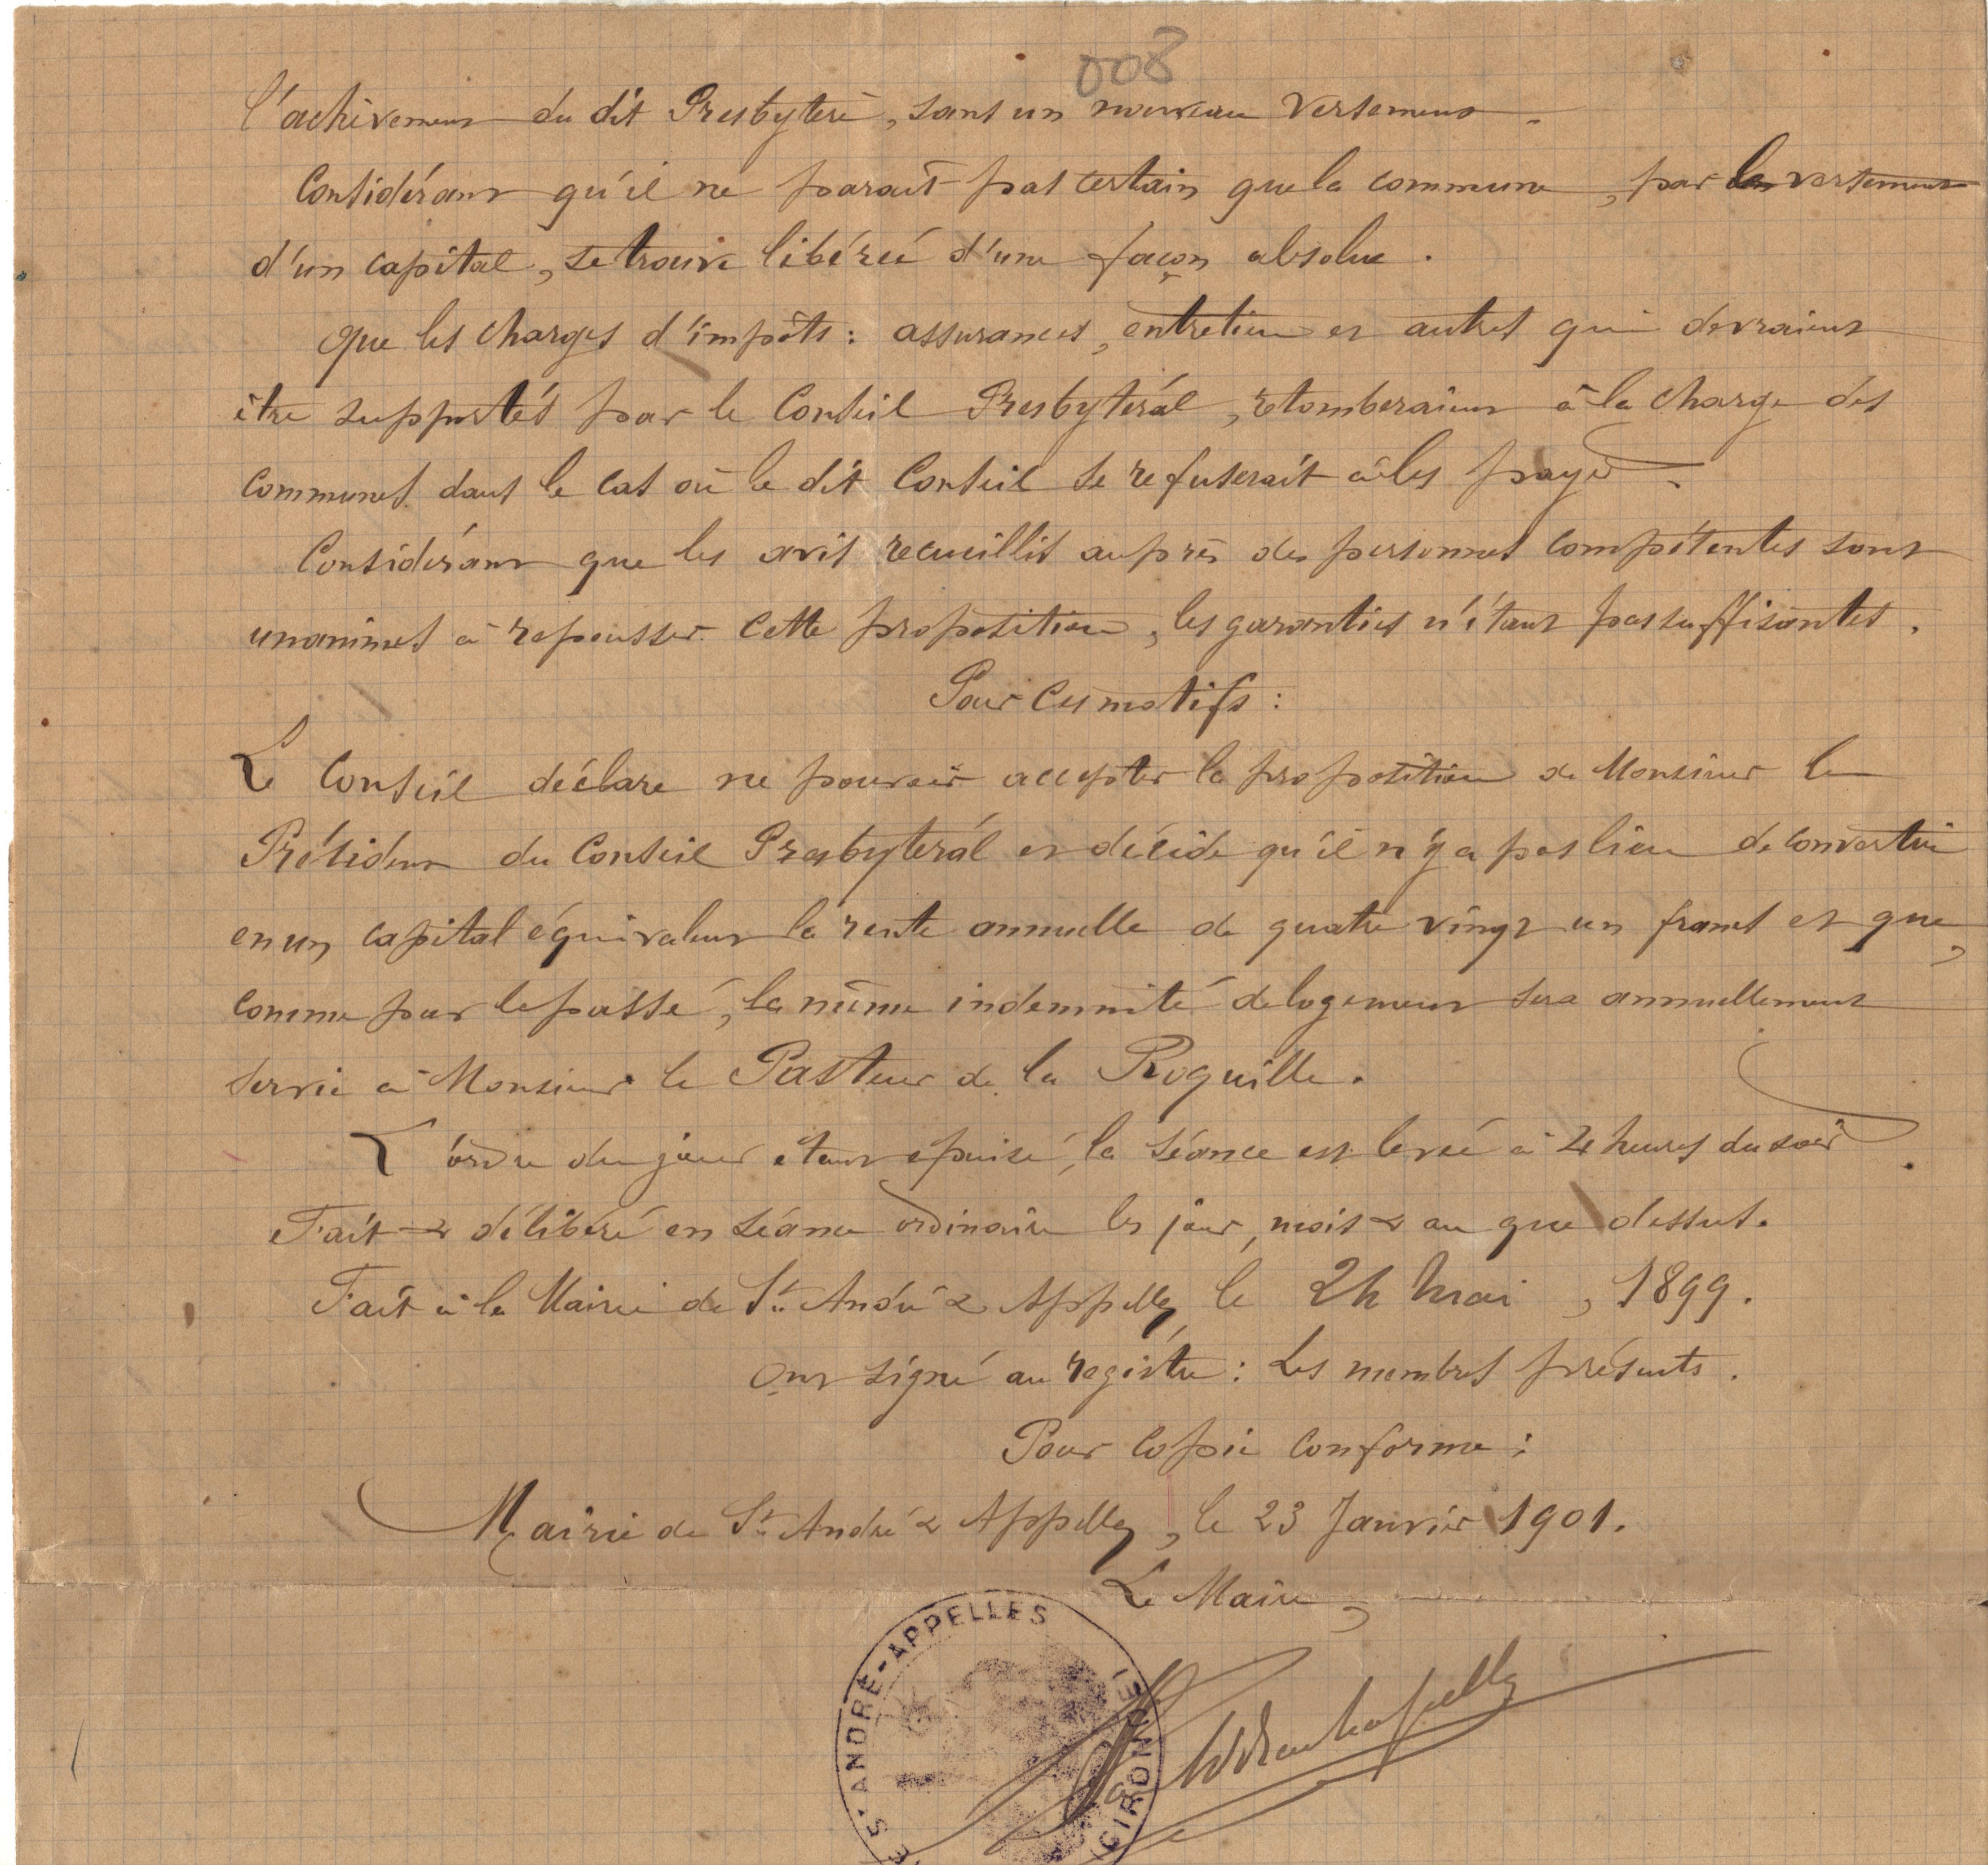 008
l'achèvement du dit Presbytère, sans un nouveau versement.
Considérant qu'il ne parait pas certain que la commune, par le versement
d'un capital, se trouve libérée d'une façon absolue.
Que les charges d'impôts : assurances, entretien et autres qui devraient
être supportés par le Conseil Presbytéral, retomberaient à la charge des
communes dans le cas où le dit Conseil se refuserait à les payer.
Considérant que les avis recueillis auprès des personnes compétentes sont
unanimes à repousser cette proposition, les garanties n'étant pas suffisantes.
Pour ces motifs :
Le Conseil déclare ne pouvoir accepter la proposition de Monsieur le
Président du Conseil Presbytéral et décide qu'il n'y a pas lieu de convertir
en un capital équivalent la rente annuelle de quatre vingt un francs et que,
comme par le passé, la même indemnité de logement sera annuellement
servie à Monsieur le Pasteur de la Roquille.
L'ordre du jour étant épuisé, la séance est levée à 4 heures du soir.
Fait & délibéré en séance ordinaire les jour, mois & an que dessus.
Fait à la Mairie de St André & Appelles, le 24 mai, 1899.
Ont signé au registre : Les membres présents.
Pour copie conforme :
Mairie de St André & Appelles, le 23 Janvier 1901.
Le Maire,
S^T ANDRÉ-APPELLES
GIRONDE